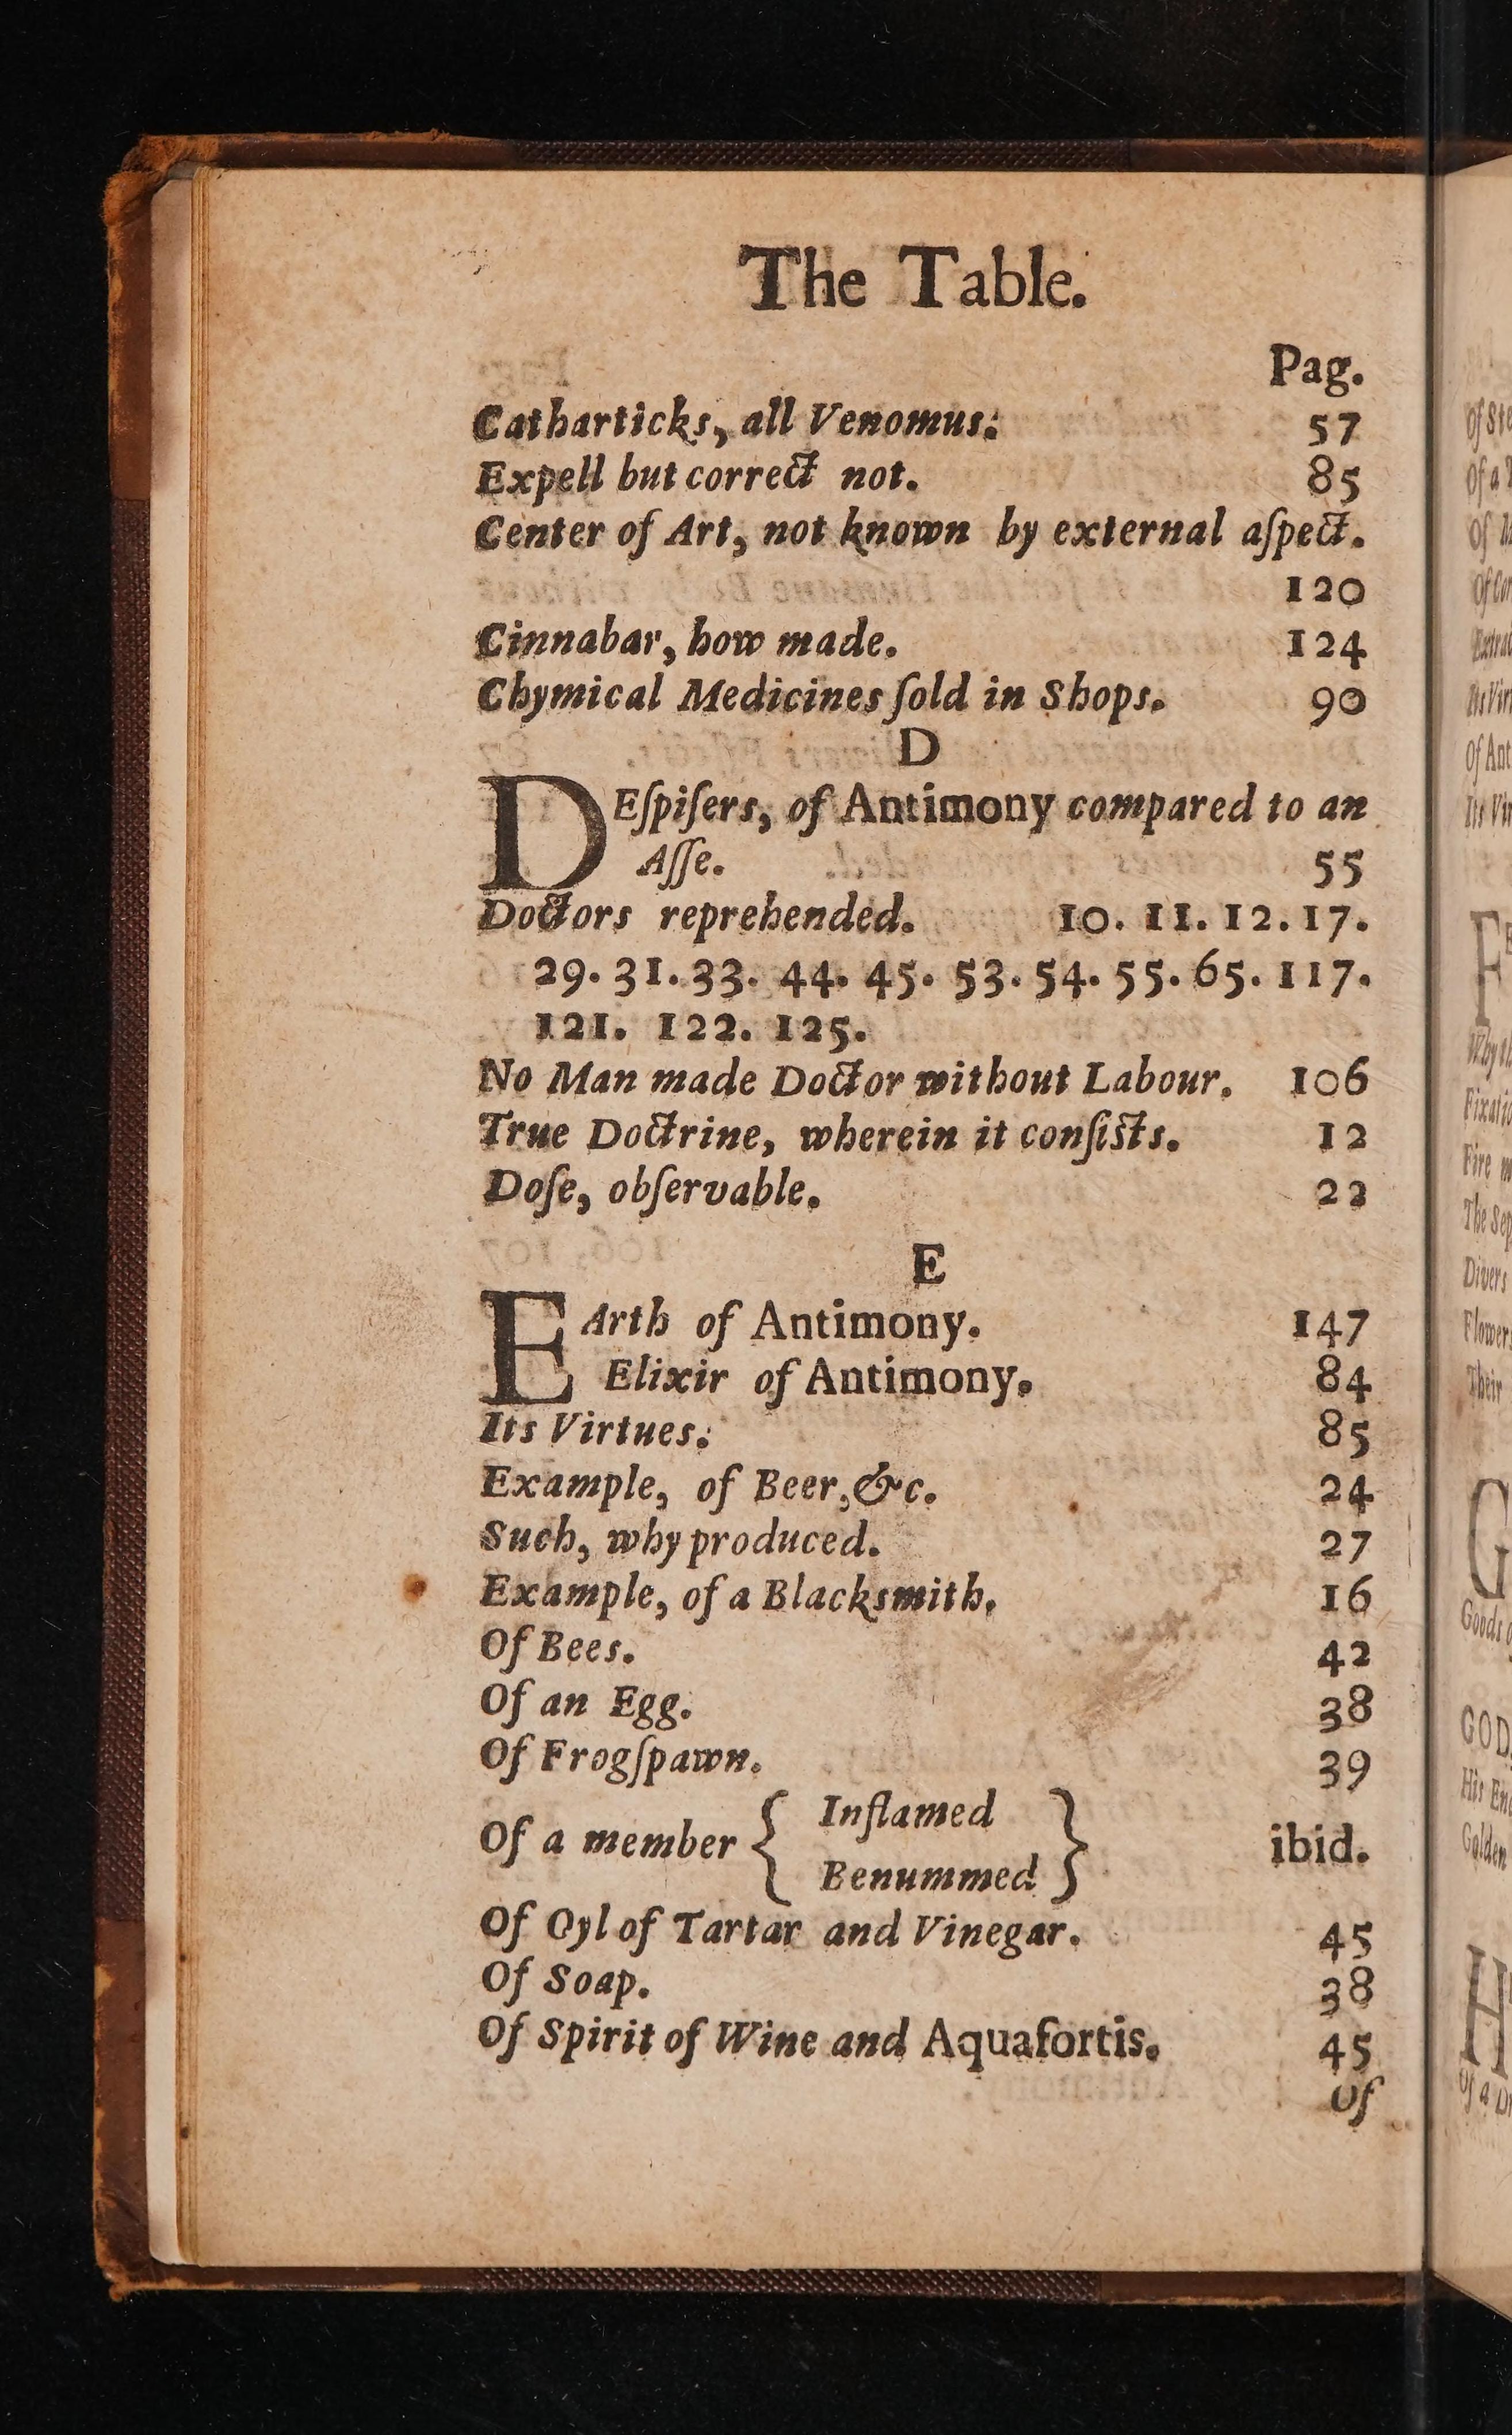 The Table.
Pag.
Catharticks, all Venomus: 57
Expell but correct not. 85
Center of Art, not known by external aſpect.
120
Cinnabar, how made. 124
Chymical Medicines ſold in Shops. 90
D
DEſpiſers, of Antimony compared to an
Aſſe. 55
Doctors reprehended. 10. 11. 12. 17.
29. 31. 33. 44. 45. 53. 54. 55. 65. 117.
121. 122. 125.
No Man made Doctor without Labour. 106
True Doctrine, wherein it conſiſts. 12
Doſe, obſervable. 22
E
EArth of Antimony. 147
Elixir of Antimony. 84
Its Virtues: 85
Example, of Beer, &c. 24
Such, why produced. 27
Example, of a Blacksmith. 16
Of Bees. 42
Of an Egg. 38
Of Frogſpawn. 39
Of a member { Inflamed
Benummed } ibid.
Of Oyl of Tartar and Vinegar. 45
Of Soap. 38
Of Spirit of Wine and Aquafortis. 45
Of